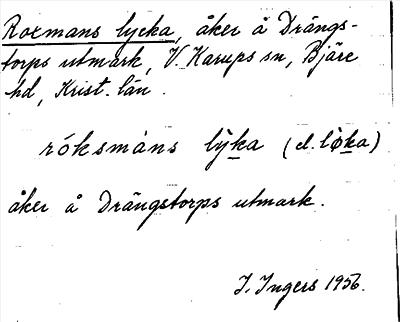 Roxmans lycka, åker å Drängs-
torps utmark, V. Karups sn, Bjäre
hd, Krist. län.
róksmàns lỳka (el. lø̀ka)
åker å Drängstorps utmark.
I. Ingers 1956.